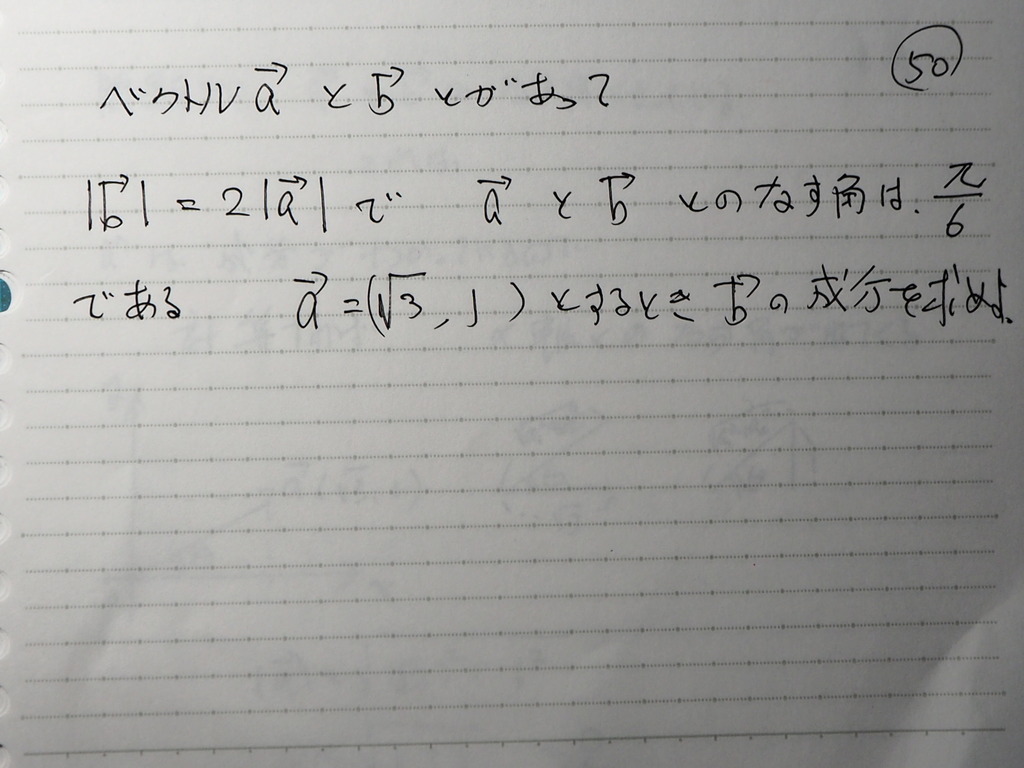 50
ベクトル a→ と b→ とがあって
|b→| = 2|a→| で a→ と b→ とのなす角は. π/6
である a→ = (√3, 1) とするとき b→ の 成分を求めよ.